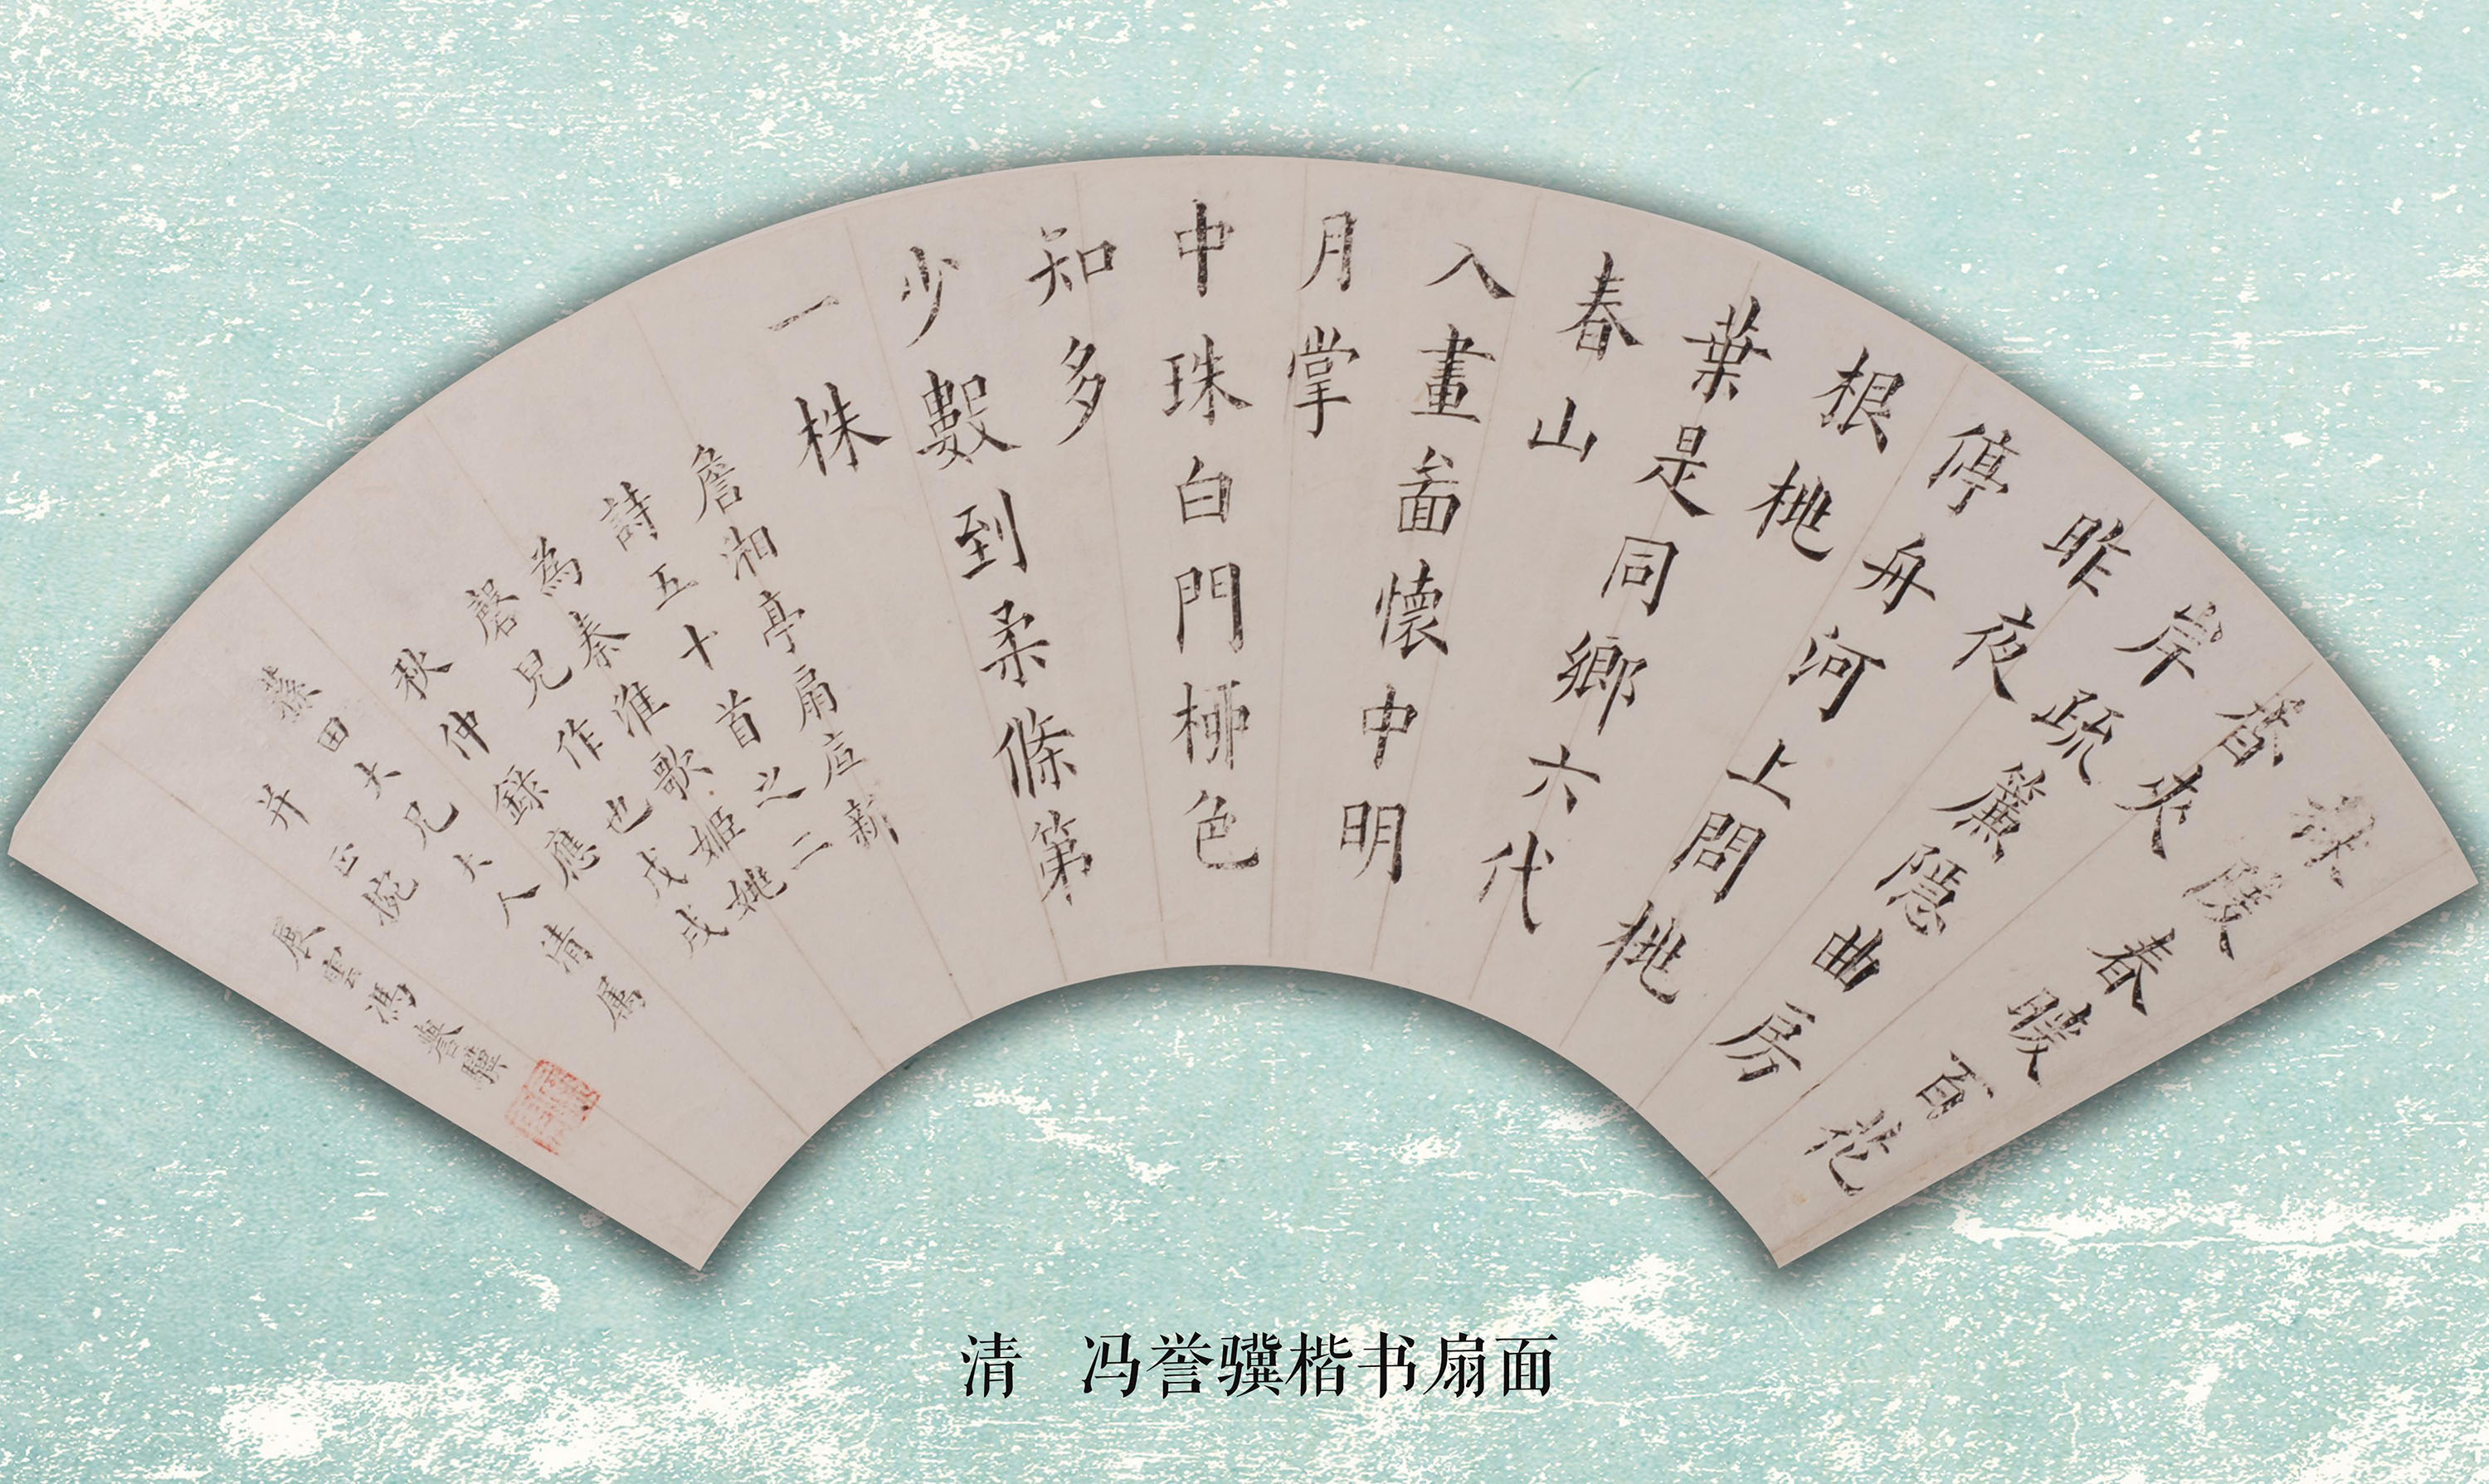 秣陵春暖百花
香夾
岸疏簾隱曲房
昨夜
停舟河上問桃
根桃
葉是同鄉六代
春山
入畫面懷中明
月掌
中珠白門柳色
知多
少數到柔條第
一株
詹湘亭扇底新
詩五十首之二
為秦淮歌姬姚
磬兒作也戊戌
秋仲錄應
田大兄大人清屬
并正
展雲馮譽驥
清 冯誉骥楷书扇面